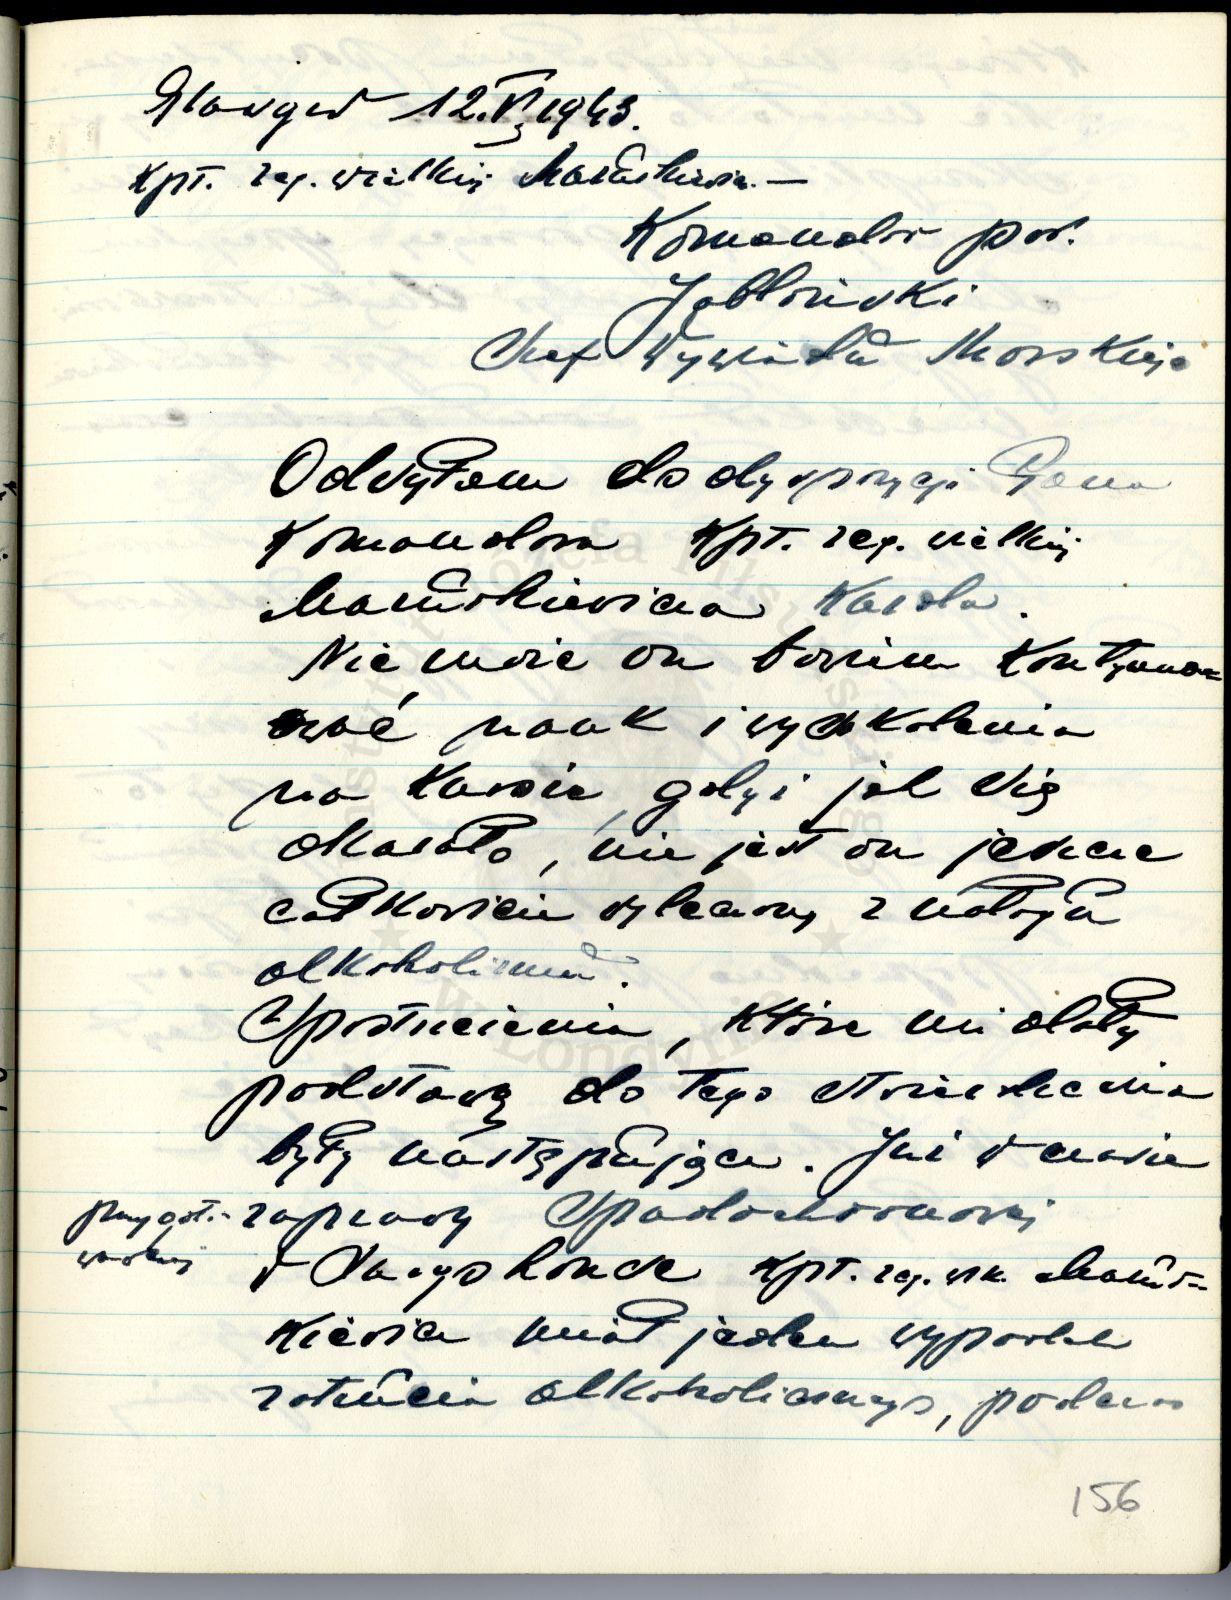 Glasgow 12.V.1943.
Kpt. żeg. wielkiej Maruszkiewicz. —
Komandor por.
Jabłoński
Szef Wywiadu Morskiego
Odsyłam do dyspozycji Pana
Komandora Kpt. żeg. wielkiej
Maruszkiewicza Karola.
Nie może on bowiem kontynuo=
wać nauk i wyszkolenia
na kursie, gdyż jak się
okazało, nie jest on jeszcze
całkowicie wyleczony z nałogu
alkoholizmu.
Spostrzeżenia, które mi dały
podstawę do tego stwierdzenia
były następujące. Już w czasie
przygoto- zaprawy spadochronowej
wawczej w Largo House kpt. żeg. wk. Marusz=
kiewicz miał jeden wypadek
zatrucia alkoholicznego, podczas
156
Instytut Józefa Piłsudskiego
w Londynie